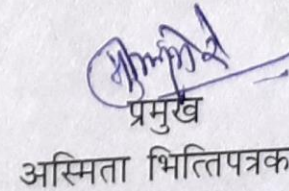 प्रमुख
अस्मिता भित्तिपत्रक